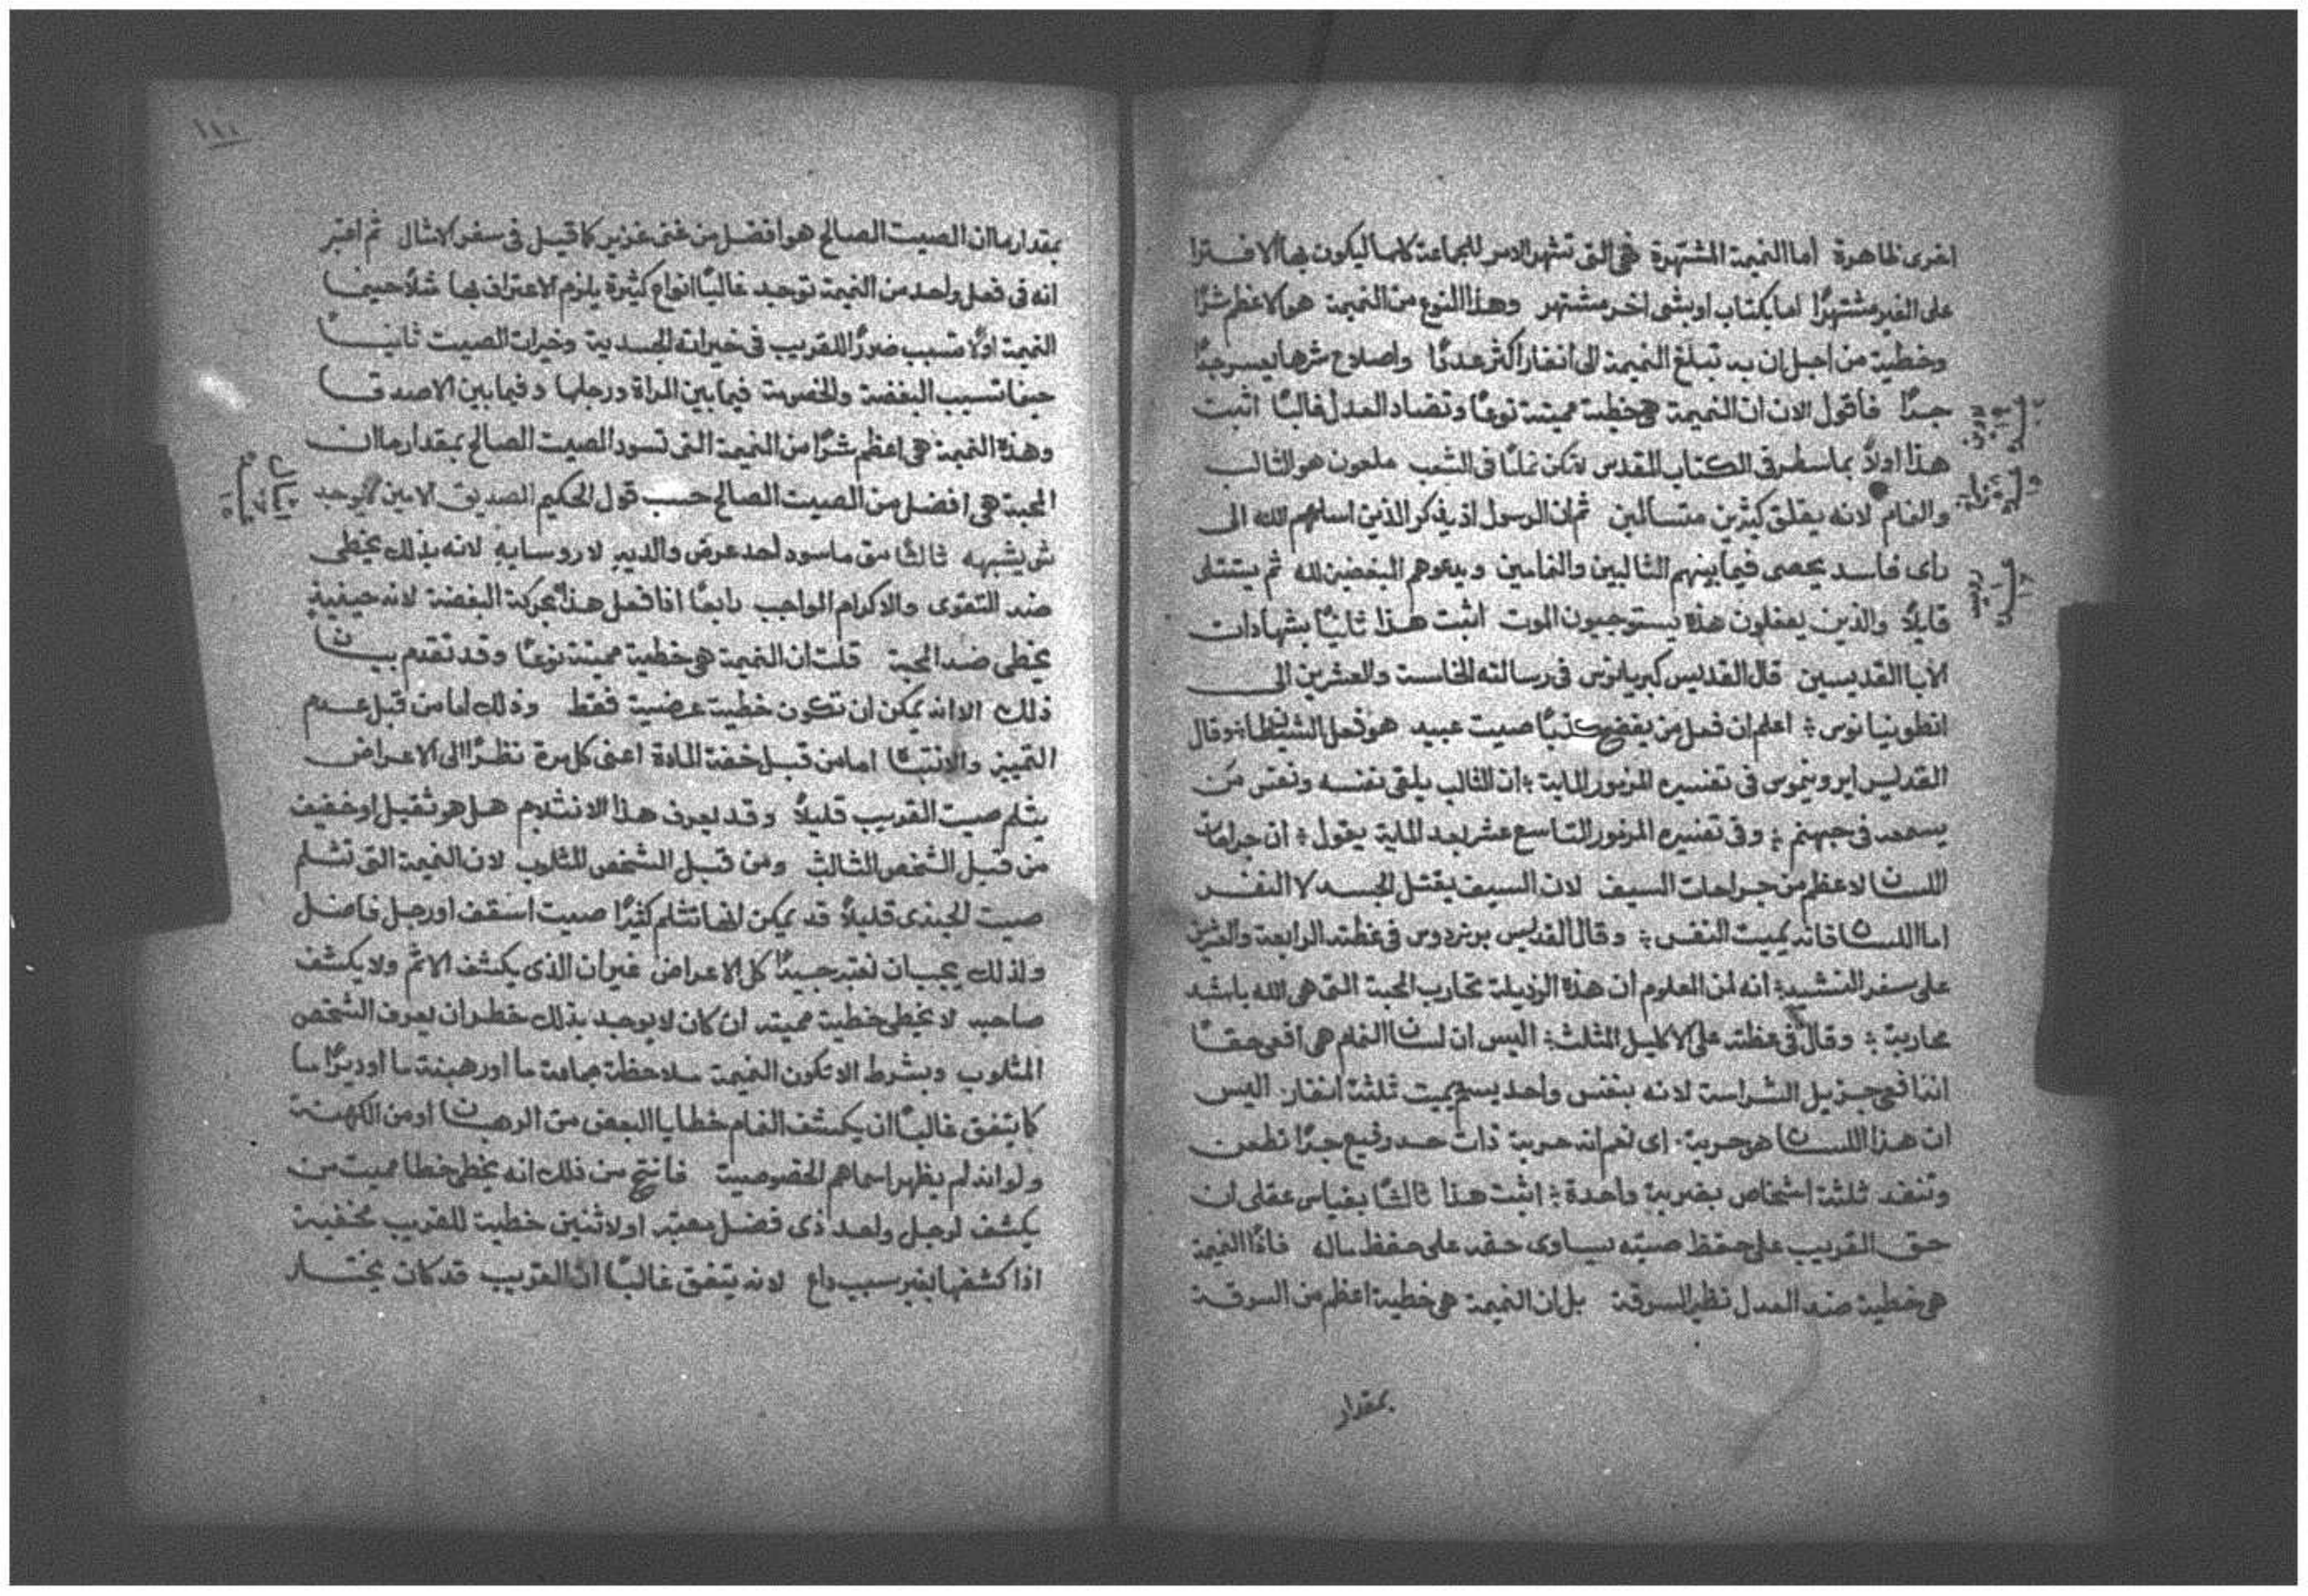 اخرى ظاهرة اما النميمة المشتهرة فهى التى تشهر الامر للجماعة كلها ليكون بها الافترا
على الغير مشتهرًا اما بكتاب او بشى اخر مشتهر وهذا النوع من النميمة هو الاعظم شرًا
وخطية من اجل ان به تبلغ النميمة الى انفار اكثر عددًا واصلاح شرها يعسر جدًا
جدًا فأقول الان ان النميمة هى خطية مميتة نوعًا وتضاد العدل غالبًا اثبت
هذا اولاً بما سطر فى الكتاب المقدس لا تكن نمامًا فى الشعب ملعون هو الثالب
والنمام لانه يقلق كثيرين متسالمين ثم ان الرسول اذ يذكر الذين اسلمهم الله الى
راى فاسد يحصى فيما بينهم الثالبين والنمامين ويدعوهم المبغضين لله ثم يستتلى
قايلاً والذين يفعلون هذه يستوجبون الموت اثبت هذا ثانيًا بشهادات
الابا القديسين قال القديس كبريانوس فى رسالته الخامسة والعشرين الى
انطونيانوس ؛ اعلم ان فعل من يفضح كذبًا صيت عبيد هو فعل الشيطان وقال
القديس ايرونيموس فى تفسيره المزمور الماية ؛ ان الثالب يلقى نفسه ونفس من
يسمعه فى جهنم ؛ وفى تفسيره المزمور التاسع عشر بعد الماية يقول ؛ ان جراحات
اللسان لاعظم من جراحات السيف لان السيف يقتل الجسد لا النفس
اما اللسان فانه يميت النفس ؛ وقال القديس برنردوس فى عظته الرابعة والعشرين
على سفر النشيد ؛ انه لمن المعلوم ان هذه الرذيلة تحارب المحبة التى هى الله باشد
محاربة ؛ وقال فى عظته على الاكليل المثلث ؛ اليس ان لسان النمام هى افعى حقًا
انها فهى جزيل الشراسة لانه بنفس واحد يسم يميت ثلثة انفار. اليس
ان هذا اللسان هو حربة. اى نعم انه حربة ذات حد رفيع جدًا تطعن
وتنفد ثلثة اشخاص بضربة واحدة ؛ اثبت هذا ثالثًا بقياس عقلى ان
حق القريب على حفظ صيته يساوى حقه على حفظ ماله فاذًا النميمة
هى خطية ضد العدل نظير السرقة بل ان النميمة هى خطية اعظم من السرقة
بمقدار
لاوين
١٩
روميه
١١١
بمقدار ما ان الصيت الصالح هو افضل من غنى غزير كما قيل فى سفر الامثال ثم اعتبر
انه فى فعل واحد من النميمة توجد غالبًا انواع كثيرة يلزم الاعتراف بها مثلاً حينما
النميمة اولاً تسبب ضررًا للقريب فى خيراته الجسدية وخيرات الصيت ثانيًا
حينما تسبب البغضة والخصومة فيما بين المراة ورجلها وفيما بين الاصدقا
وهذه النميمة هى اعظم شرًا من النميمة التى تسود الصيت الصالح بمقدار ما ان
المحبة هى افضل من الصيت الصالح حسب قول الحكيم الصديق الامين لا يوجد
شى يشبهه ثالثًا متى ما سود احد عرض والديه او روسايه لانه بذلك يخطى
ضد التقوى والاكرام الواجب رابعًا اذا فعل هذا بحركة البغضة لانه حينيذٍ
يخطى ضد المحبة قلت ان النميمة هى خطية مميتة نوعًا وقد تقدم بيان
ذلك الا انه يمكن ان تكون خطية عرضية فقط وذلك اما من قبل عدم
التمييز والانتباه اما من قبل خفة المادة اعنى كل مرة نظرًا الى الاعراض
يثلم صيت القريب قليلاً وقد يعرف هذا الانثلام هل هو ثقيل او خفيف
من قبل الشخص الثالب ومن قبل الشخص المثلوب لان النميمة التى تثلم
صيت الجندى قليلاً قد يمكن انها تثلم كثيرًا صيت اسقف او رجل فاضل
ولذلك يجب ان نعتبر جيدًا كل الاعراض غير ان الذى يكشف الاثم ولا يكشف
صاحبه لا يخطى خطية مميته ان كان لا يوجد بذلك خطر ان يعرف الشخص
المثلوب وبشرط الا تكون النميمة ملاحظة جماعة ما او رهبنة ما او ديرًا ما
كما يتفق غالبًا ان يكشف النمام خطايا البعض من الرهبان او من الكهنة
ولو انه لم يظهر اسماهم الخصوصية فانتج من ذلك انه يخطى خطا مميت من
يكشف لرجل واحد ذى فضل معتبر او لاثنين خطية للقريب مخفية
اذا كشفها بغير سبب داعٍ لانه يتفق غالبًا ان القريب قد كان يختار
امثال